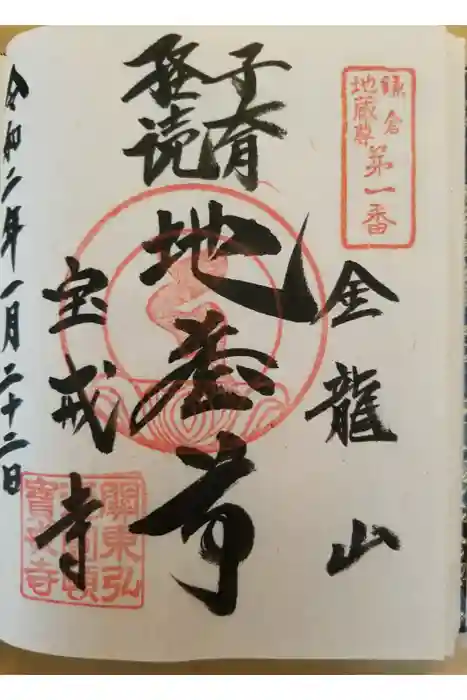 鎌倉
地蔵尊
第一番
金龍山
子育
経読
地蔵尊
宝戒寺
令和二年一月二十二日
關東弘
寶戒寺